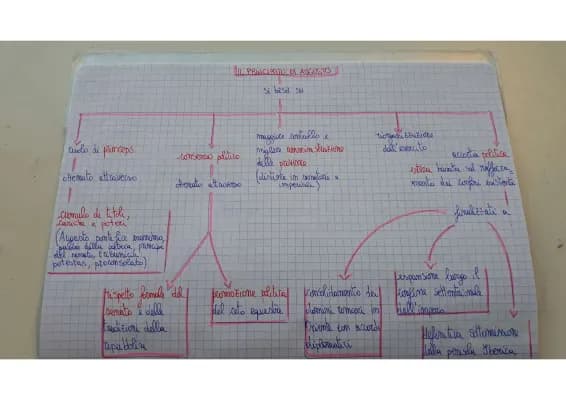 IL PRINCIPATO DI AUGUSTO
si basa su
ruolo di princeps
ottenuto attraverso
cumulo di titoli,
cariche e poteri
(Augusto, pontifex maximus,
padre della patria, princeps
del senato, tribunicia
potestas, proconsolato)
consenso politico
ottenuto attraverso
rispetto formale del
senato e delle
tradizioni della
repubblica
promozione politica
del ceto equestre
maggiore controllo e
migliore amministrazione
delle province
(distinte in senatorie e
imperiali)
riorganizzazione
dell'esercito
accorta politica
estera basata sul rafforza
mento dei confini esistenti
finalizzati a
consolidamento dei
domini romani in
oriente con accordi
diplomatici
espansione lungo il
confine settentrionale
dell'impero
definitiva sottomissione
della penisola Iberica